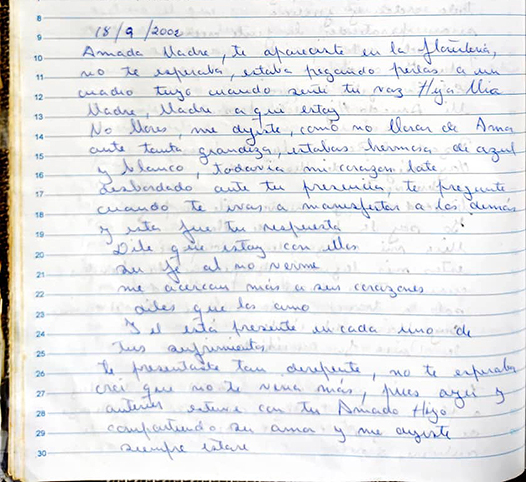 18/9/2002
Amada Madre, te apareciste en la florideria,
no te esperaba, estaba pegando perlas a un
cuadro tuyo cuando sentí tu voz Hija Mia
Madre, Madre a qui estoy
No llores, me dijiste, como no llorar de Amor
ante tanta grandeza, estabas hermosa de azul
y blanco, todavia mi corazon late
desbordado ante tu presencia, te pregunte
cuando te ivas a manifestar a los demás
y esta fue tu respuesta
Dile que estoy con ellos
su fe al no verme
me acercan más a sus corazones
diles que los amo
Y el está presente en cada uno de
tus sufrimientos
te presentaste tan derepente, no te esperaba
crei que no te veria más, pues ayer y
antier estuve con tu Amado Hijo
compartiendo su amor y me dijiste
siempre estare
8
9
10
11
12
13
14
15
16
17
18
19
20
21
22
23
24
25
26
27
28
29
30